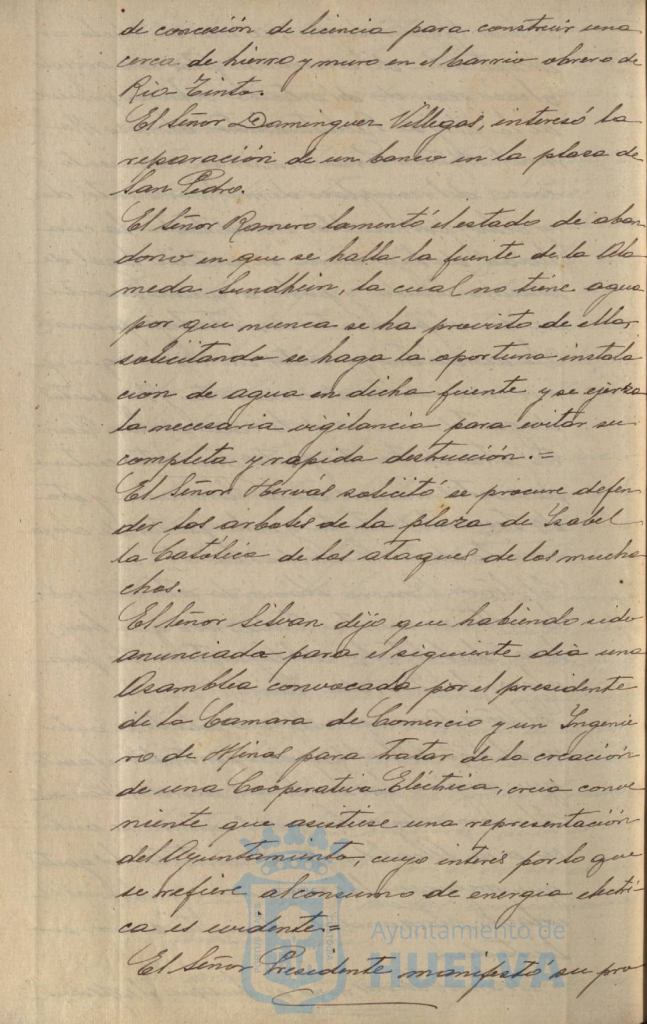 de concesión de licencia para construir una
cerca de hierro y muro en el barrio obrero de
Rio Tinto.
El Señor Dominguez Villegas, interesó la
reparación de un banco en la plaza de
San Pedro.
El Señor Ramero lamentó el estado de aban
dono en que se halla la fuente de la Ala
meda Sundhein, la cual no tiene agua
por que nunca se ha provisto de ella,
solicitando se haga la oportuna instala
ción de agua en dicha fuente y se ejerza
la necesaria vigilancia para evitar su
completa y rapida destrucción.=
El Señor Hervás solicitó se procure defen
der los arboles de la plaza de Isabel
la Católica de los ataques de los mucha
chos.
El Señor Silvan dijo que habiendo sido
anunciada para el siguiente dia una
Asamblea convocada por el presidente
de la Camara de Comercio y un Ingenie
ro de Minas para tratar de la creación
de una Cooperativa Eléctrica, creia conve
niente que asistiese una representación
del Ayuntamiento, cuyo interés por lo que
se refiere al consumo de energia electri-
ca es evidente.=
El Señor Presidente manifestó su pro
Ayuntamiento de
HUELVA